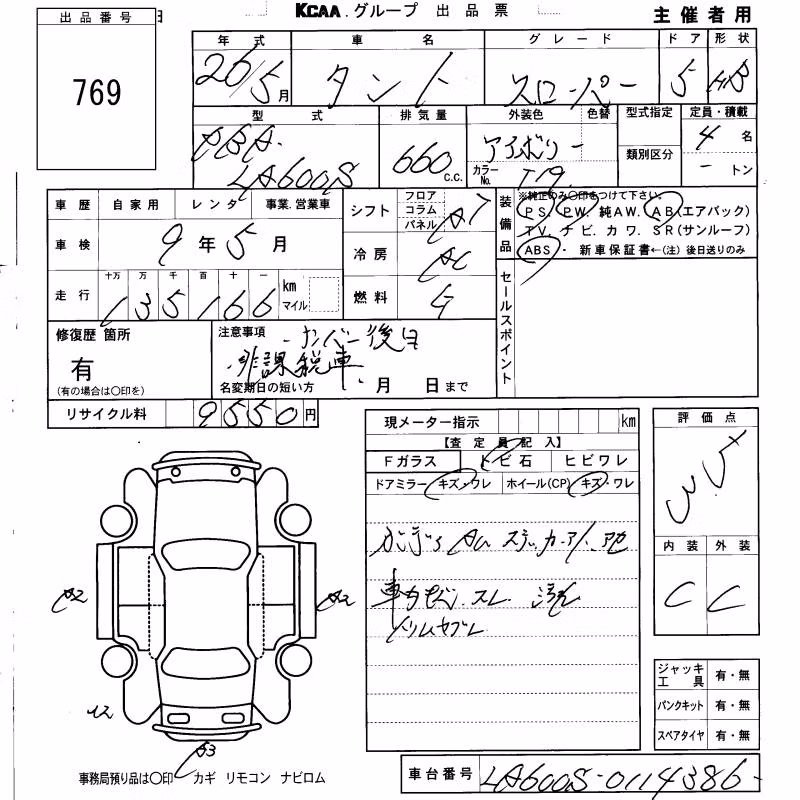 KCAA グループ 出品票
主催者用
出品番号
769
年式 車名 グレード ドア 形状
26/5月 タント スローパー 5 HB
型式 排気量 外装色 色替 型式指定 定員・積載
DBA-LA600S 660c.c. アイボリー カラーNo. T19 類別区分 4名
－トン
車歴 自家用 レンタ 事業.営業車
シフト フロア コラム パネル AT
装備品 ※純正のみ〇印をつけて下さい。
PS, PW, 純AW, AB(エアバック)
TV, ナビ, カワ, SR(サンルーフ)
ABS・新車保証書←(注) 後日送りのみ
車検 9年5月
冷房 AC
走行 十万 万 千 百 十 一
135166 km マイル
燃料 G
セールスポイント
修復歴 箇所
有
(有の場合は〇印を)
注意事項 ・ナンバー後日
・非課税車
名変期日の短い方 月 日まで
リサイクル料 9550円
現メーター指示 km
【査定員記入】
Fガラス トビ石 ヒビワレ
ドアミラー キズ・ワレ ホイール(CP) キズ・ワレ
スレ
評価点
3.5
内装 外装
C C
A2 A2
A3
ジャッキ工具 有・無
パンクキット 有・無
スペアタイヤ 有・無
事務局預り品は〇印 カギ リモコン ナビロム
車台番号 LA600S-0114386-